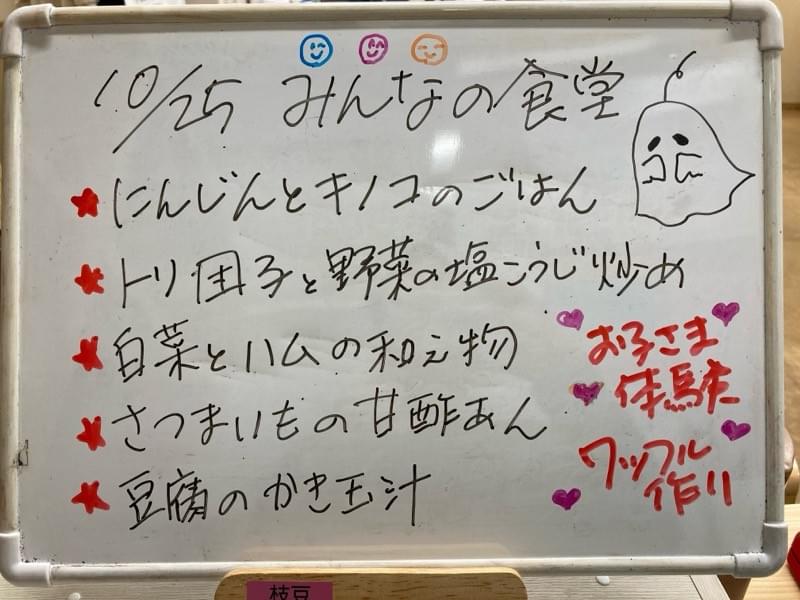 10/25 みんなの食堂
にんじんとキノコのごはん
トリ団子と野菜の塩こうじ炒め
白菜とハムの和え物
さつまいもの甘酢あん
豆腐のかき玉汁
お子さま
体験
ワッフル
作り
枝豆